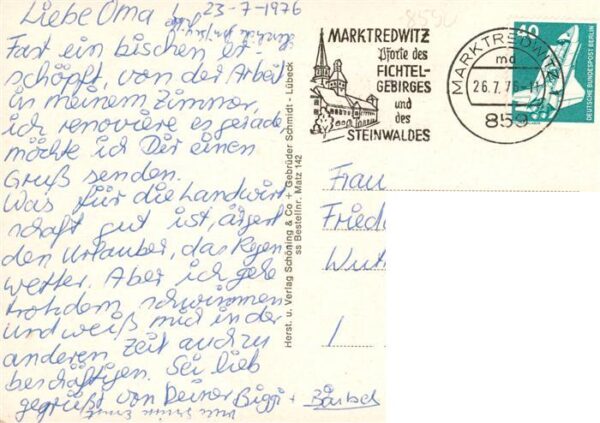 Liebe Oma 23-7-1976
Fast ein bischen er-
schöpft, von der Arbeit
in meinem Zimmer,
ich renoviere es gerade
möchte ich Dir einen
Gruß senden.
Was für die Landwirt
schaft gut ist, ärgert
den Urlauber, das Regen
wetter. Aber ich gehe
trotzdem schwimmen
und weiß mich in der
anderen Zeit auch zu
beschäftigen. Sei lieb
gegrüßt von Deiner Biggi + Bärbel
Herst. u. Verlag Schöning & Co + Gebrüder Schmidt - Lübeck
ss Bestellnr. Matz 142
8590
MARKTREDWITZ
Pforte des
FICHTEL-
GEBIRGES
und
des
STEINWALDES
MARKTREDWITZ 1
ma
26.7.76
859
40
DEUTSCHE BUNDESPOST BERLIN
Frau
Fried
Wu